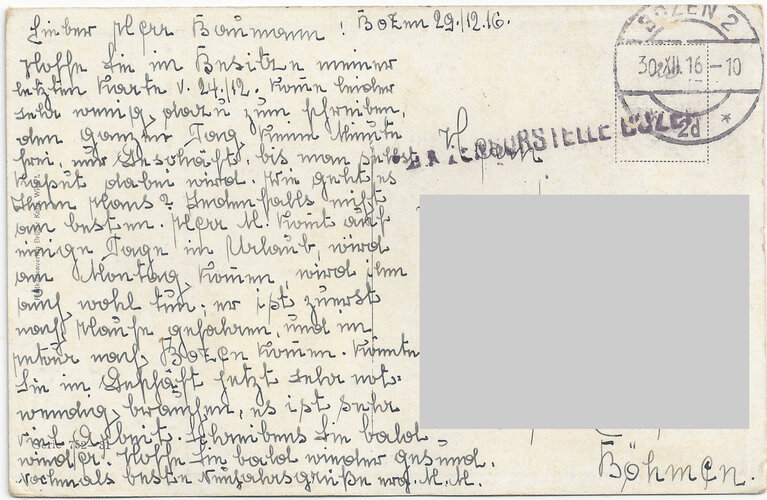 Lieber Herr Baumann! Bozen 29./12.16.
Hoffe Sie im Besitze meiner
letzten Karte v. 24./12. Komme leider
sehr wenig dazu zum schreiben,
den ganzen Tag keine Minute
frei, nur Geschäft, bis man selbst
kaput dabei wird. Wie geht es
Ihnen Hans? Jedenfalls nicht
am besten. Herr M. komt auf
einige Tage im Urlaub, wird
am Montag kommen, wird ihm
auch wohl tun; er ist zuerst
nach Hause gefahren, und im
retour nach Bozen kommen. Könnte
Sie im Geschäft jetzt sehr not-
wendig brauchen, es ist sehr
viel Arbeit. Schreibens Sie bald
wieder. Hoffe Sie bald wieder gesund.
Nochmals beste Neujahrsgrüße erg. M.M.
BOZEN 2
30.XII.16-10
2d
ZENSURSTELLE BOZEN
Herrn
Böhmen.
Serie 752-31